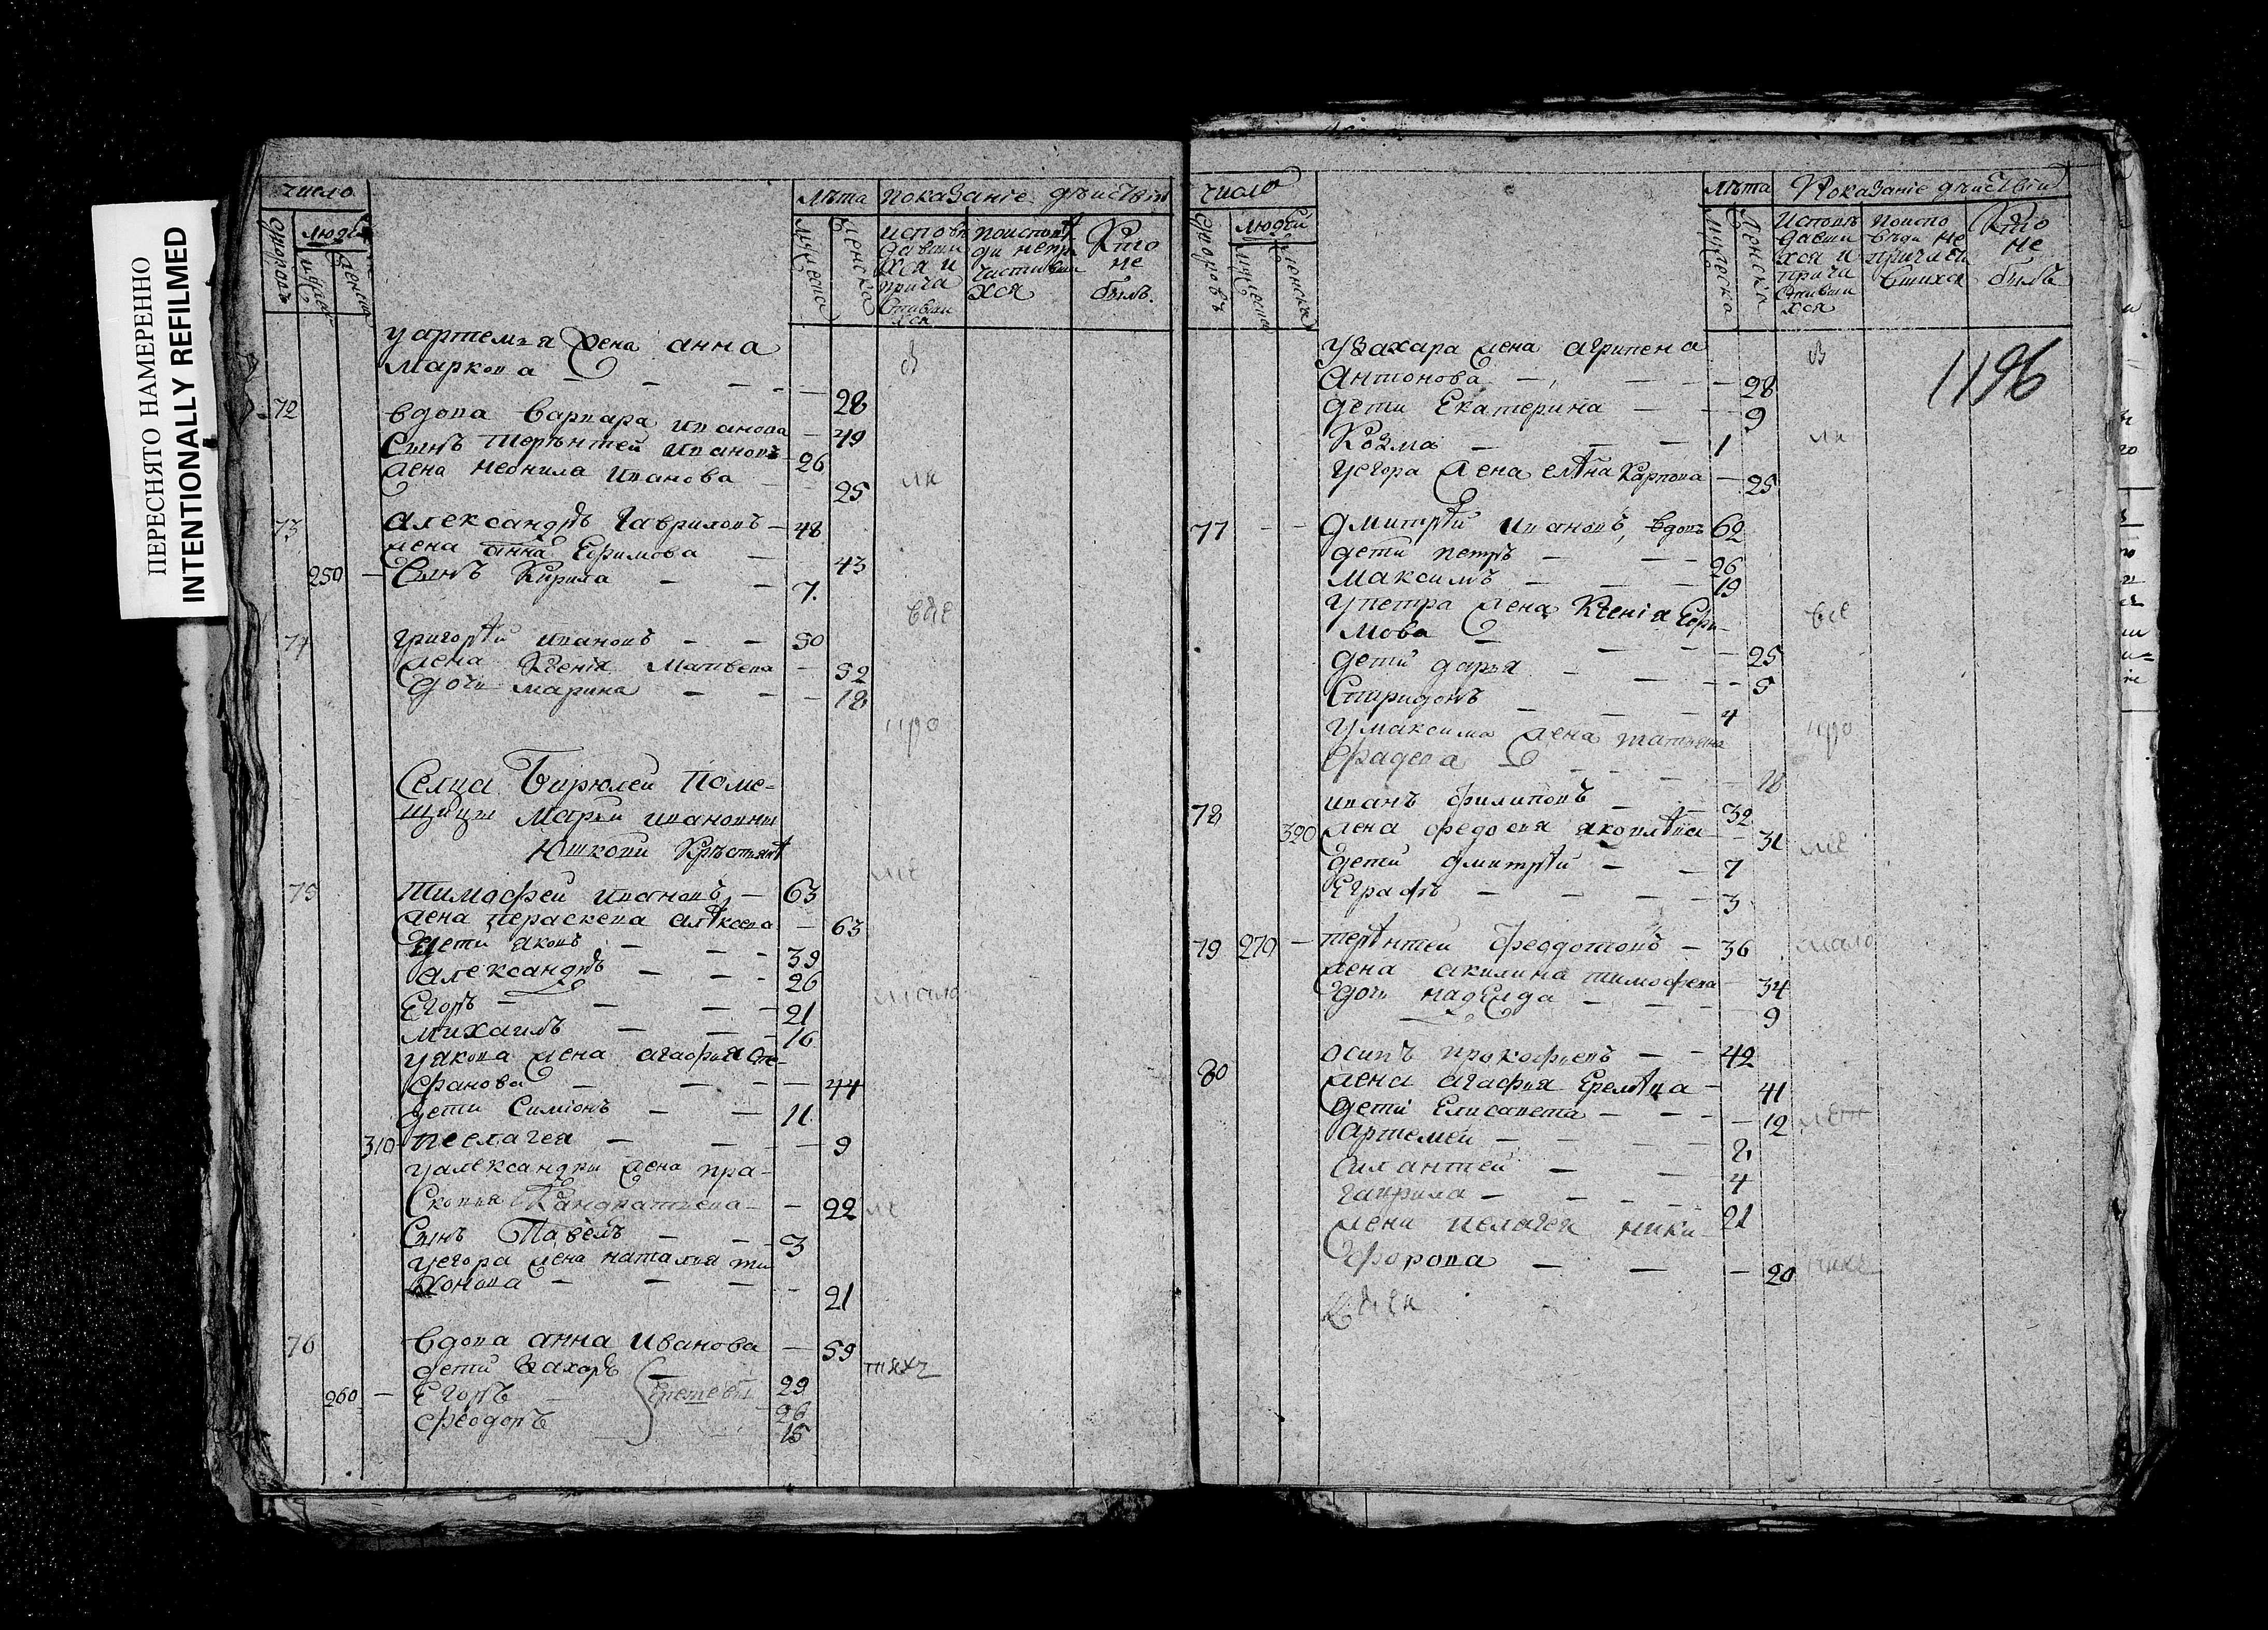 ПЕРЕСНЯТО НАМЕРЕННО
INTENTIONALLY REFILMED
число
лѣта показаніе дѣиствъ
людеи
дворовъ
женска
испове поисповѣ Кто
давши ди непри не
хся и частивши былъ.
прича хся
стивши
хся
уартемья жена анна
Маркова — — — — 28
72 вдова варвара иванова — 49
Сынъ терѣнтеи ивановъ 26
жена неонила иванова — 25
73 александръ гавриловъ — 48
жена анна Ефимова — 43
250 — Сынъ Кирила — — 7.
все
74 григорѣи ивановъ — — 50
жена Ксенія Матвева — 52
дочь марина — — — 18
про
Селца Бирюлеи поме-
щицы Марьи ивановны
Юшкови Крѣстьянѣ
75 тимофеи ивановъ — 63
жена параскева алѣксева — 63
дети яковъ — — — 39
александръ — — — 26
Егоръ — — — 21
михаилъ — — — 16
уякова жена агафья Сте-
фанова — — — — 44
дети Симіонъ — — 11
310 пеелагея — — — 9
уалександры жена пра-
сковья Кандратьева — — 22
Сынъ Павелъ — — 3
уегора жена наталья ти
хонова — — — 21
76 вдова анна Иванова — 59
дети Захаръ — 29
260 — Егоръ — 26
феодоръ 15
число
лѣта Показаніе дѣиствіи
людеи
дворовъ
мужеска
женска
мужеска
женска
Исповѣ поиспо Кто
давши вѣди не не
хся и причасти былъ
прича вшихся
стивши
хся
1196
узахара жена агрипена
Антонова — — — 28
дети Екатерина — — 9
Козма — — — 1
уегора жена елѣна Карпова — 25
77 — — дмитрѣи ивановъ, вдовъ 62
дети петръ — — — 26
максимъ — — — 19
упетра жена Ксенія Ефи-
мова — — — — 25
все
дети дарья — — — 5
Спиридонъ — — — 4
умаксима жена татьяна
фадеева — — — — 18
про
78 иванъ филиповъ — — 32
320 жена федосия яковлѣва — 31
дети дмитрѣи — — 7
Еграфъ — — — 3
79 270 — терѣнтеи феодотовъ — 36
жена акилина тимофева — 34
дочь надежда — — — 9
80 осипъ прокофьевъ — — 42
жена агафия Еремѣева — 41
дети Елисавета — — — 12
артемеи — — — 2.
силантеи — — 4
гаврила — — — 21
жена пелагея ники-
форова — — — 20